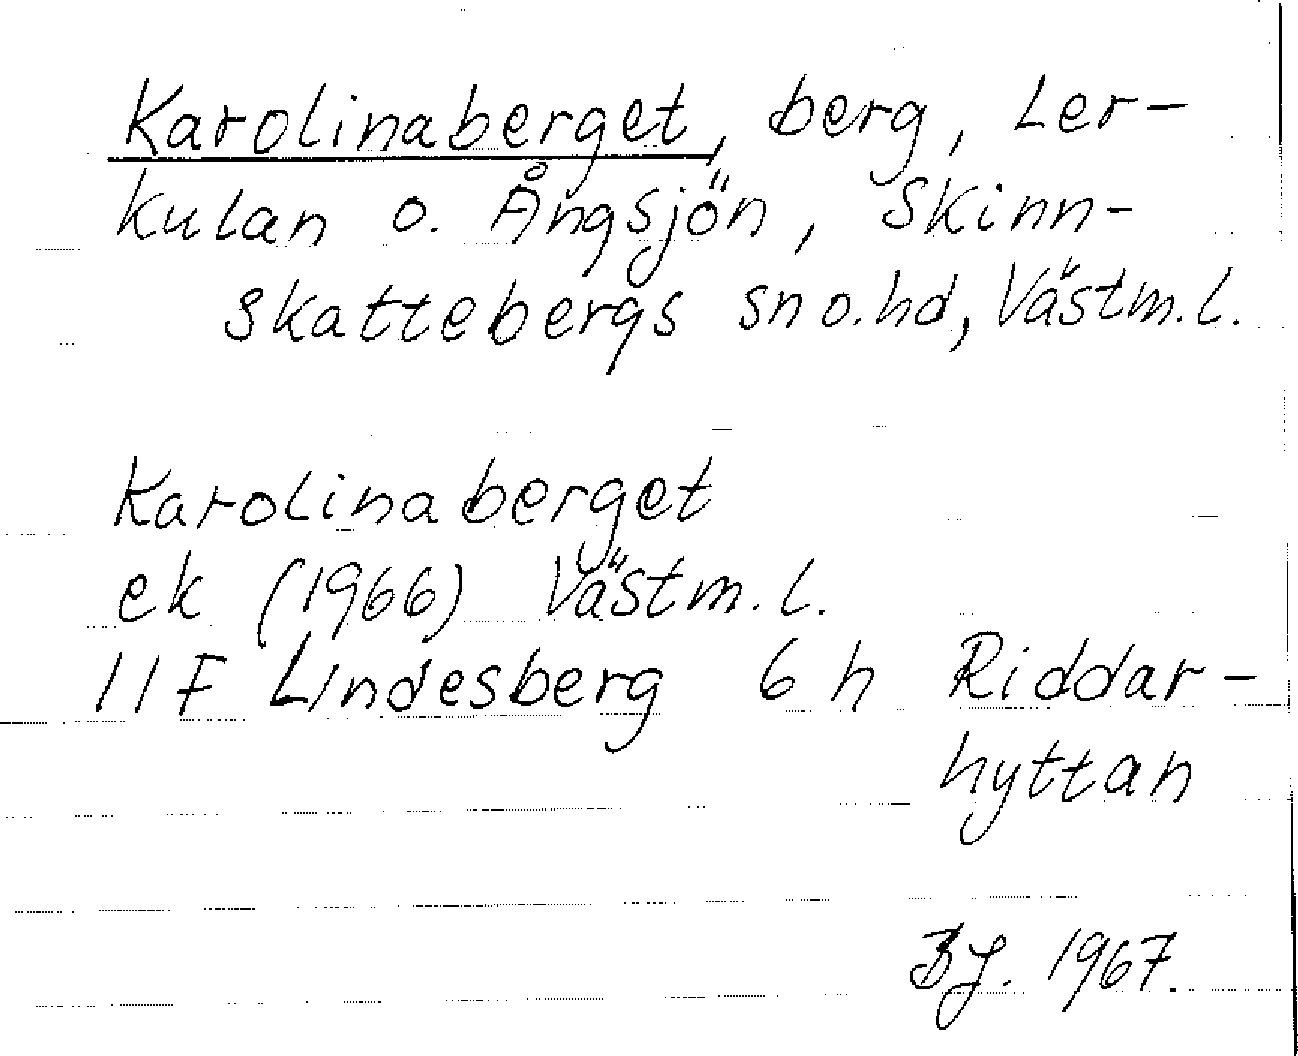 Karolinaberget, berg, Ler-
kulan o. Ångsjön, Skinn-
skattebergs sn o. hd, Västm. l.
Karolinaberget
ek (1966) Västm. l.
11F Lindesberg 6h Riddar-
hyttan
BJ. 1967.